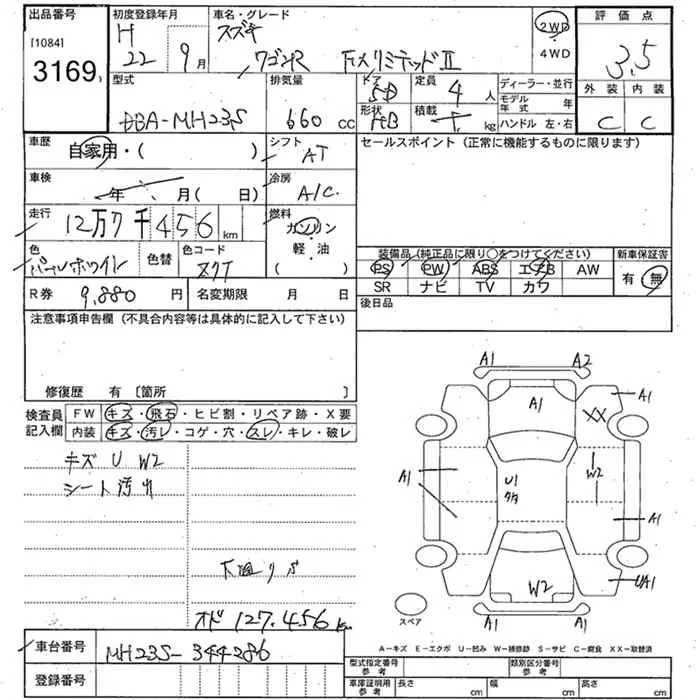 出品番号 初度登録年月 車名・グレード 評価点
[1084] H スズキ 2WD
3169 22 9月 ワゴンR FXリミテッドⅡ 4WD 3.5
型式 排気量 ドア 定員 ディーラー・並行 外装 内装
5D 4人 モデル年式 年
DBA-MH23S 660 CC 形状 積載 ハンドル 左・右 C C
HB kg
車歴 自家用・( ) シフト AT セールスポイント (正常に機能するものに限ります)
車検 年 月( 日) 冷房 A/C
走行 12万7千456km 燃料 ガソリン
軽・油
( )
色 パールホワイト 色替 色コード 装備品 (純正品に限り○をつけてください) 新車保証書
PS PW ABS エアB AW 有 無
R券 9,880円 名変期限 月 日 SR ナビ TV カワ
注意事項申告欄 (不具合内容等は具体的に記入して下さい) 後日品
修復歴 有 〔箇所 〕
検査員 FW キズ・飛石・ヒビ割・リペア跡・X要
記入欄 内装 キズ・汚レ・コゲ・穴・スレ・キレ・破レ
A1 A2
A1 A1
XX
キズ U W2
シート汚れ
A1 U1 W2
A1
下廻りサ
W2 UA1
オド 127.456km
スペア A1 A1
A-キズ E-エクボ U-凹み W-補修跡 S-サビ C-腐食 XX-取替済
車台番号 MH23S-344286
型式指定番号 参考 類別区分番号 参考
登録番号
車庫証明用 参考 長さ cm 幅 cm 高さ cm